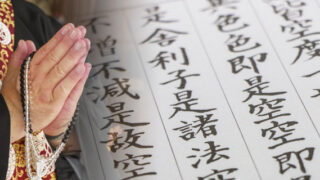 皆空度
異色色即是空空即
是舍利子是諸法空
不增不減是故空